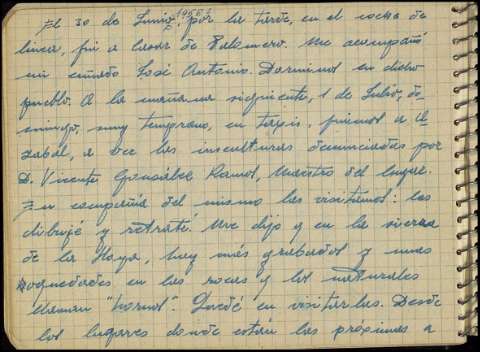 El 30 de Junio, 1956? por la tarde, en el coche de
línea, fui a Casar de Palomero. Me acompañó
mi cuñado José Antonio. Dormimos en dicho
pueblo. A la mañana siguiente, 1 de Julio, do-
mingo, muy temprano, en taxis, fuimos a
zabal, a ver las insculturas denunciadas por
D. Vicente González Ramos, Maestro del lugar.
En compañía del mismo las visitamos: las
dibujé y retraté. Me dijo q en la sierra
de la Hoya, hay más grabados y unas
oquedades en las rocas q los naturales
llaman "hornos". Quedé en visitarlas. Desde
los lugares donde están las próximas a